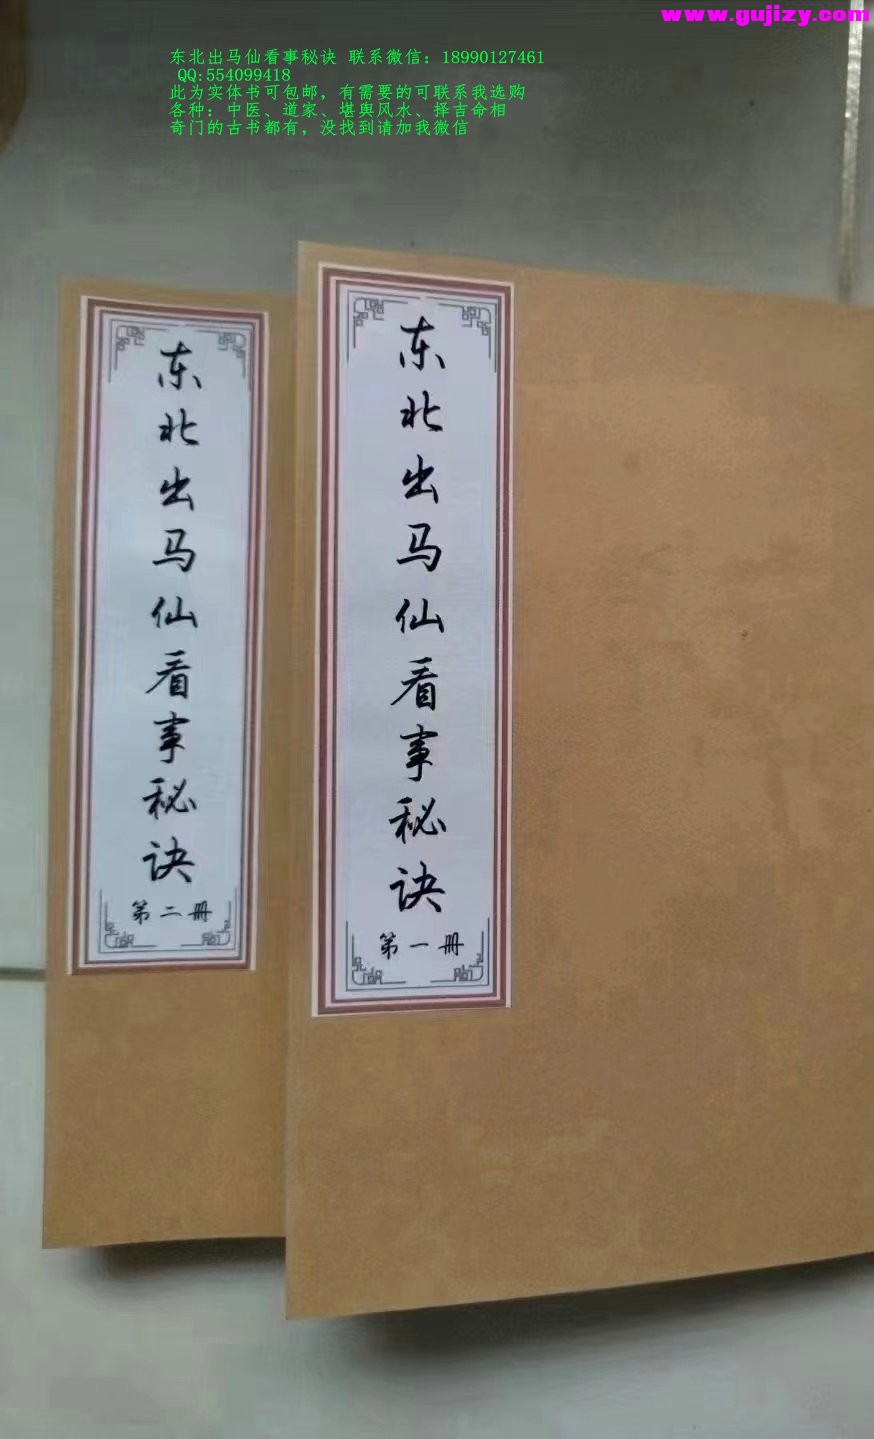 www.gujizy.com
东北出马仙看事秘诀 联系微信：18990127461
QQ:554099418
此为实体书可包邮，有需要的可联系我选购
各种：中医、道家、堪舆风水、择吉命相
奇门的古书都有，没找到请加我微信
东北出马仙看事秘诀
第一册
东北出马仙看事秘诀
第二册